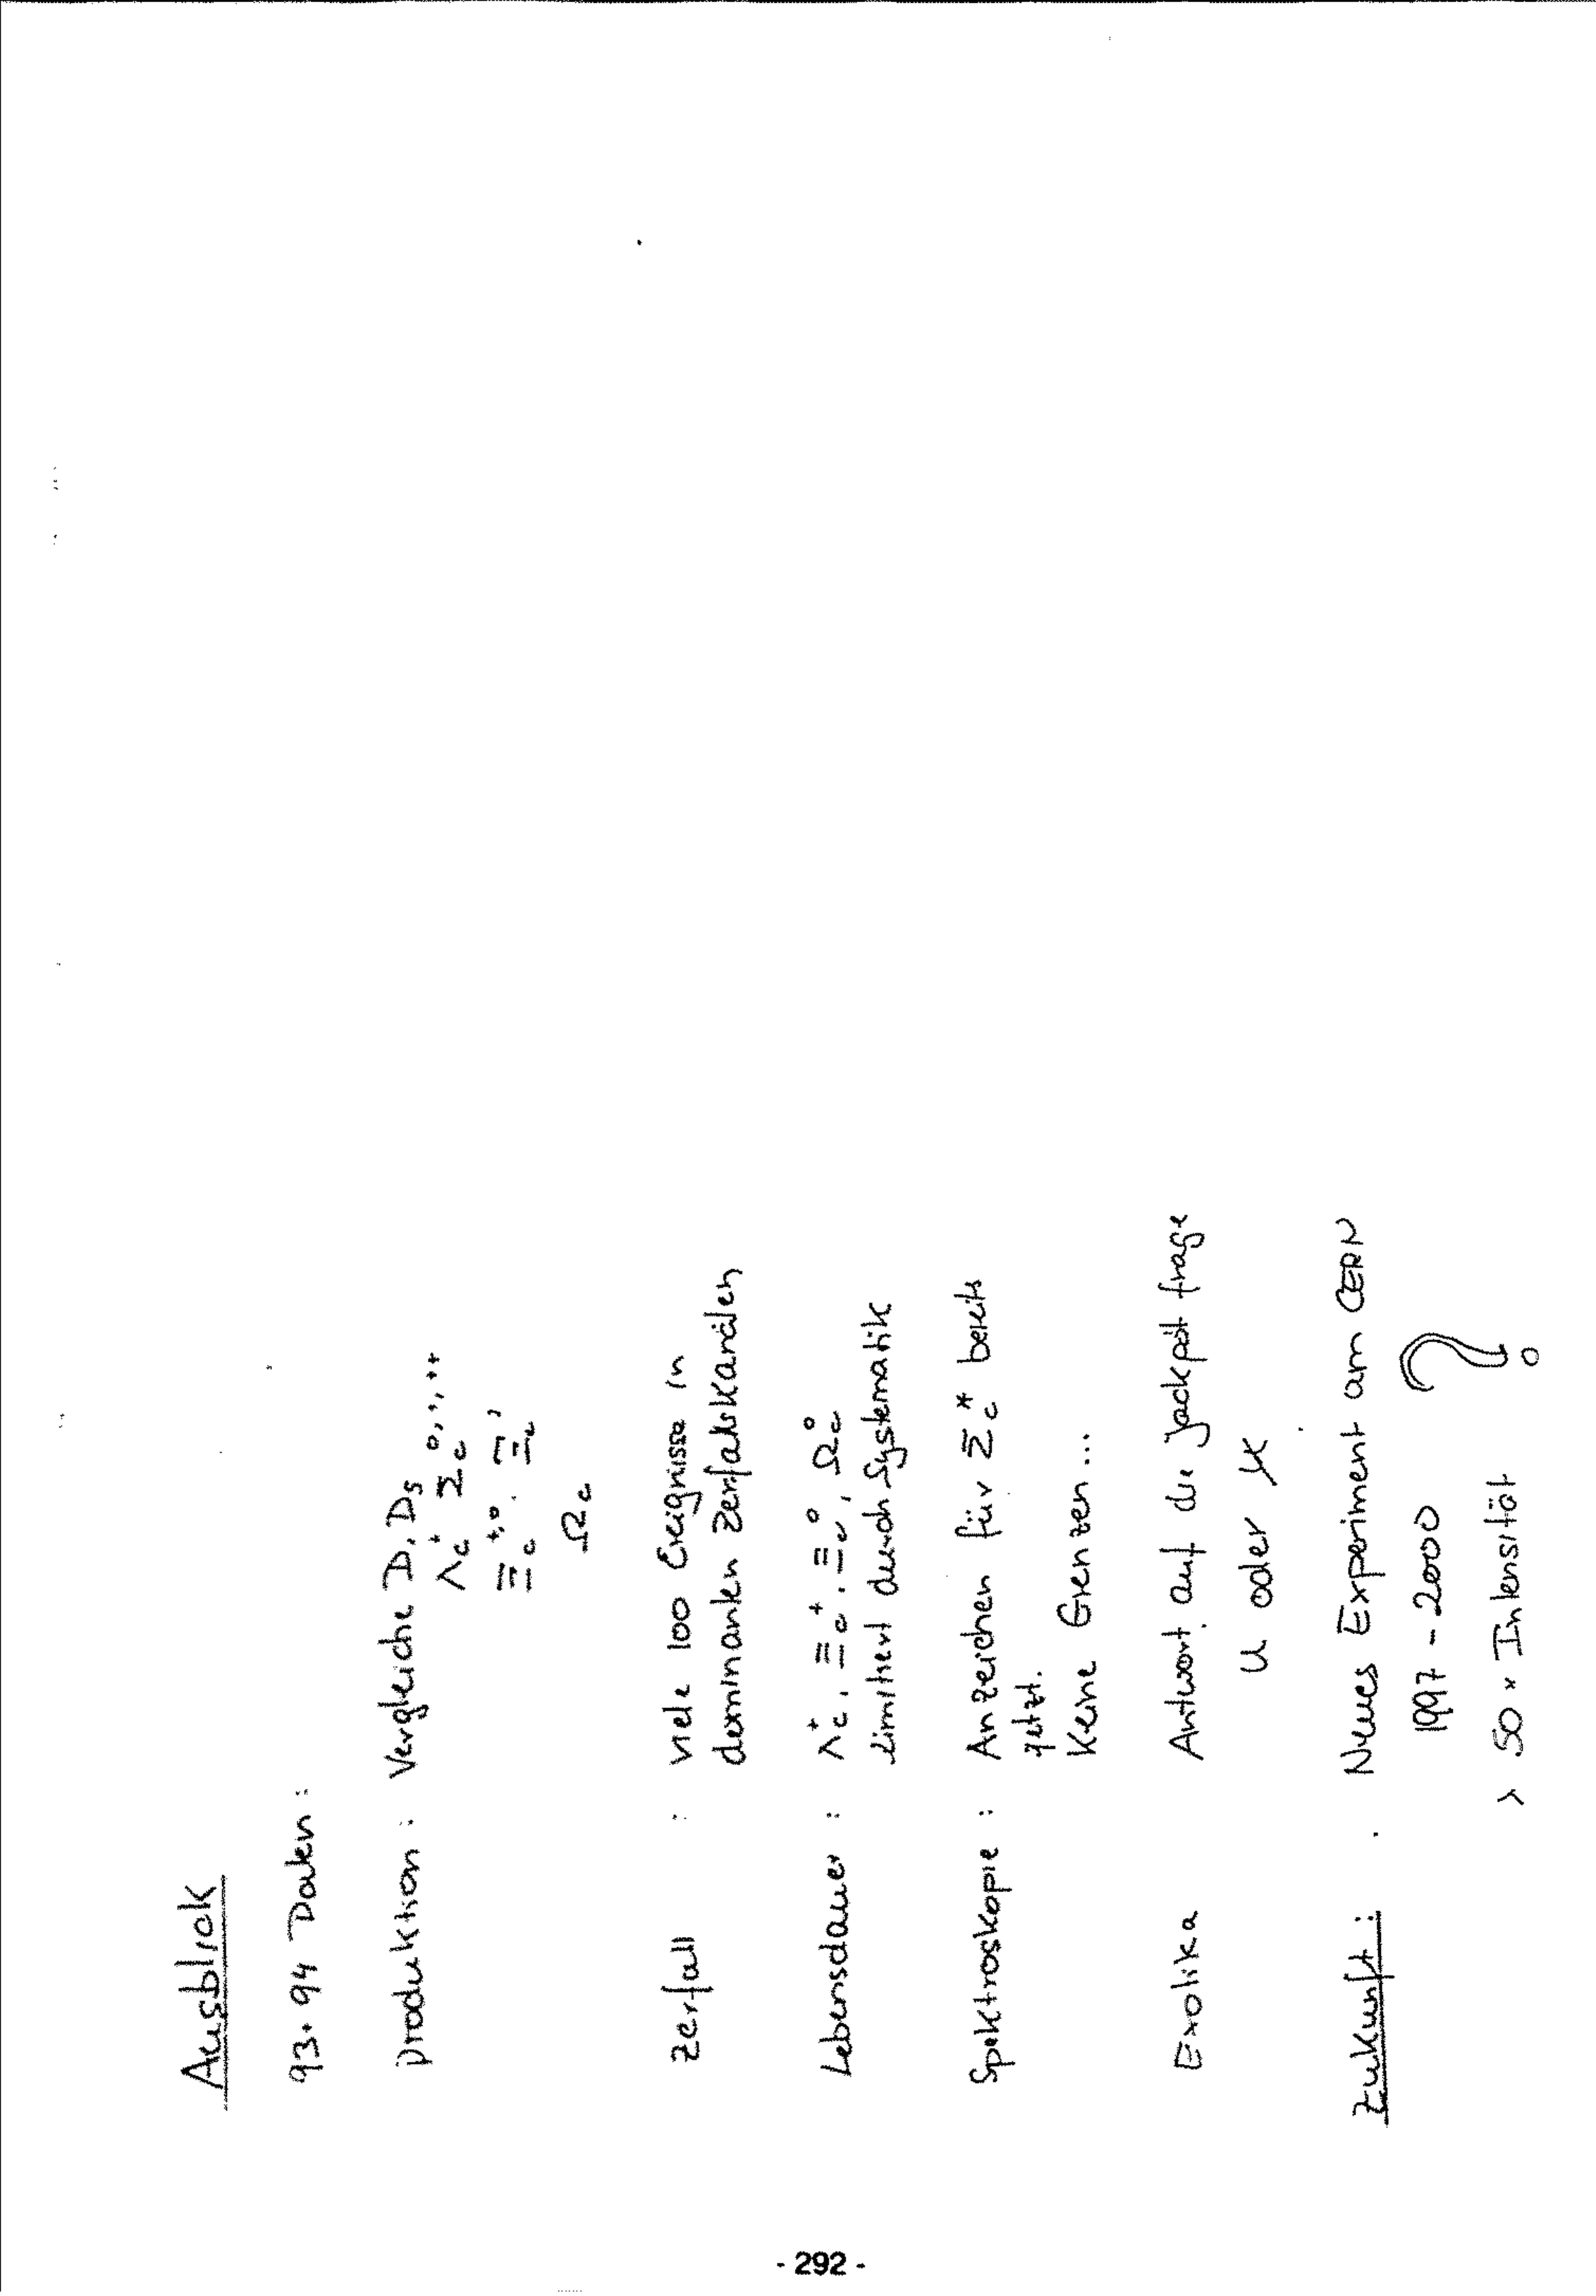 Ausblick
93+94 Daten :
Produktion : Vergleiche D, Ds
Λc⁺ Σc⁰,⁺,⁺⁺
Ξc⁺,⁰ . Ξc'
Ωc
Zerfall : viele 100 Ereignisse in
dominanten Zerfallskanälen
Lebensdauer : Λc⁺, Ξc⁺, Ξc⁰, Ωc⁰
limitiert durch Systematik
Spektroskopie : Anzeichen für Σc* bereits
jetzt.
Keine Grenzen...
Exotika Antwort auf die Jackpot frage
U oder
Zukunft : . Neues Experiment am CERN
1997 - 2000 ?
> 50 × Intensität
- 292 -